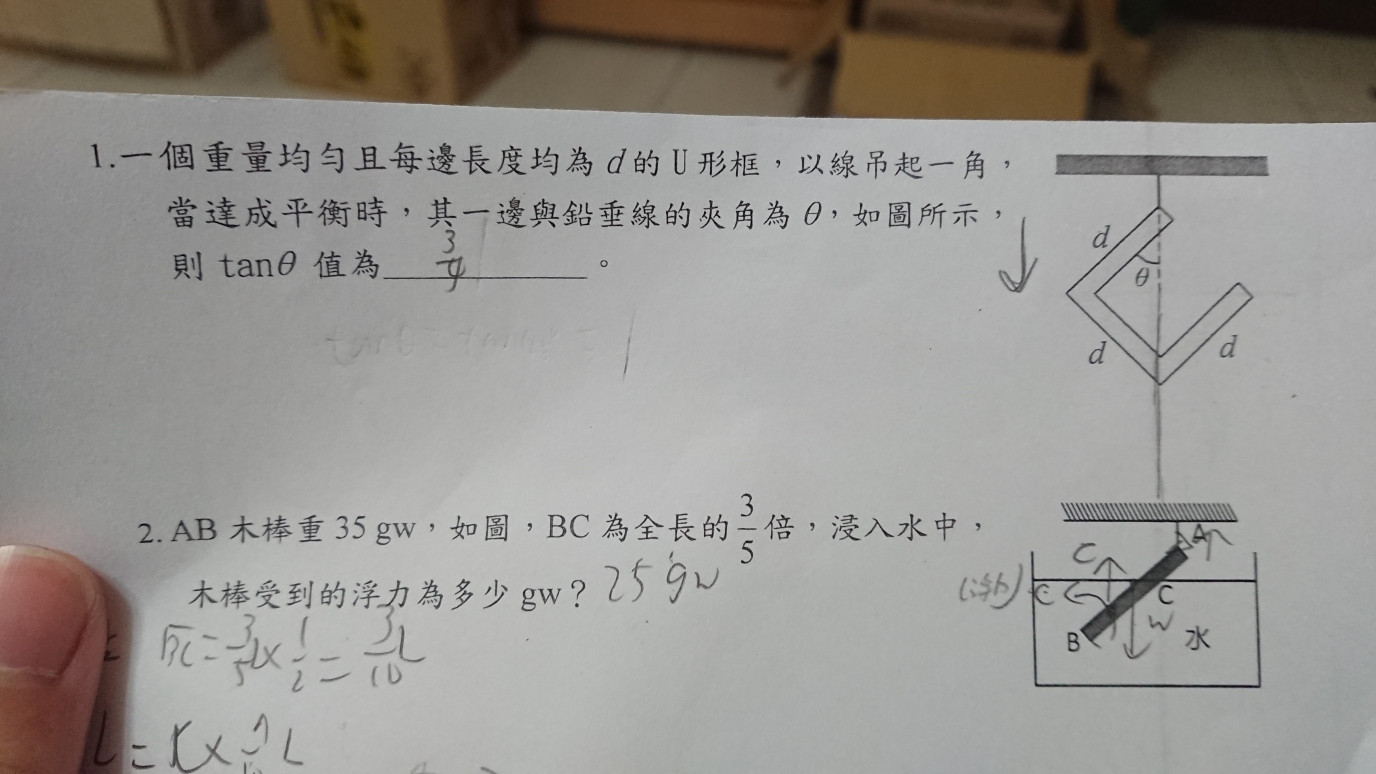 1.一個重量均勻且每邊長度均為 d 的 U 形框,以線吊起一角,
當達成平衡時,其一邊與鉛垂線的夾角為 θ,如圖所示,
則 tanθ 值為 3/4 。
d
θ
d
d
2. AB 木棒重 35 gw,如圖,BC 為全長的 3/5 倍,浸入水中,
木棒受到的浮力為多少 gw? 25 gw
BC = 3/5 L × 1/2 = 3/10 L
A
C
(浮力)
C
W
B
水